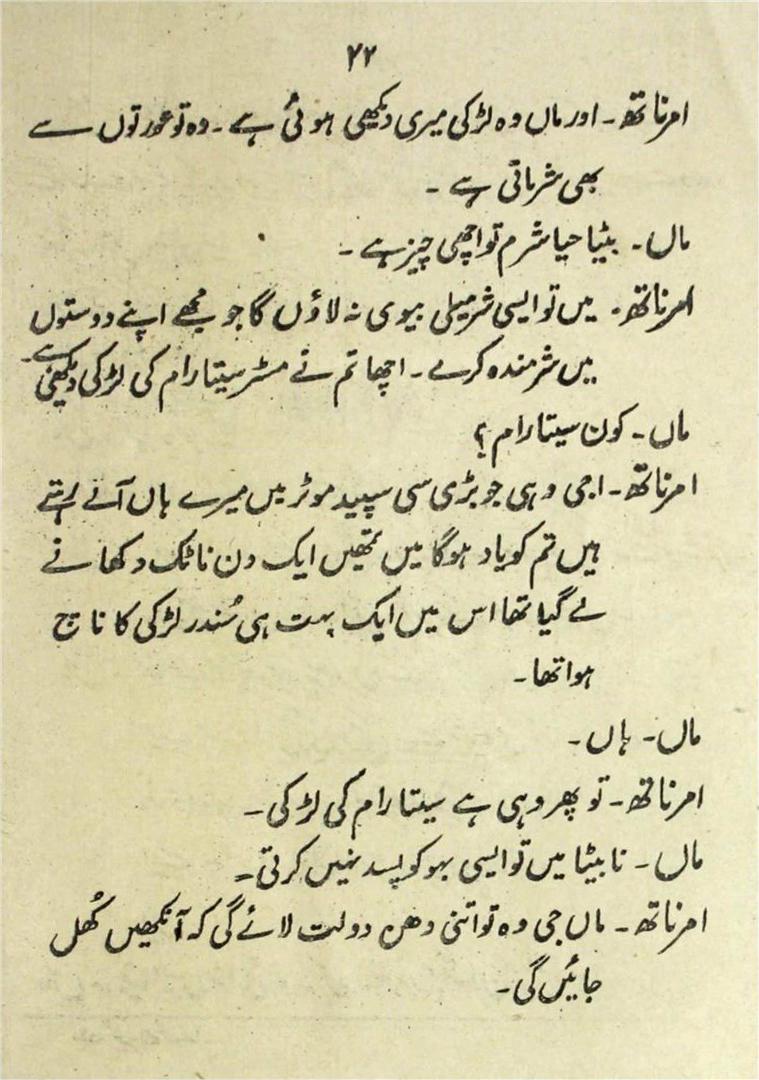 ۲۲
امرناتھ۔ اور ماں وہ لڑکی میری دیکھی ہوئی ہے۔ وہ تو عورتوں سے
بھی شرماتی ہے۔
ماں۔ بیٹیا حیا شرم تو اچھی چیز ہے۔
امرناتھ۔ میں تو ایسی شرمیلی بیوی نہ لاؤں گا جو مجھے اپنے دوستوں
میں شرمندہ کرے۔ اچھا تم نے مسٹر سیتا رام کی لڑکی دیکھی ہے۔
ماں۔ کون سیتا رام؟
امرناتھ۔ اجی وہی جو بڑی سی سپید موٹر میں میرے ہاں آتے رہتے
ہیں تم کو یاد ہوگا میں تمھیں ایک دن ناٹک دکھانے
لے گیا تھا اس میں ایک بہت ہی سُندر لڑکی کا ناچ
ہوا تھا۔
ماں۔ ہاں۔
امرناتھ۔ تو پھر وہی ہے سیتا رام کی لڑکی۔
ماں۔ نا بیٹا میں تو ایسی بہو کو پسند نہیں کرتی۔
امرناتھ۔ ماں جی وہ تو اتنی دھن دولت لائے گی کہ آنکھیں کُھل
جائیں گی۔